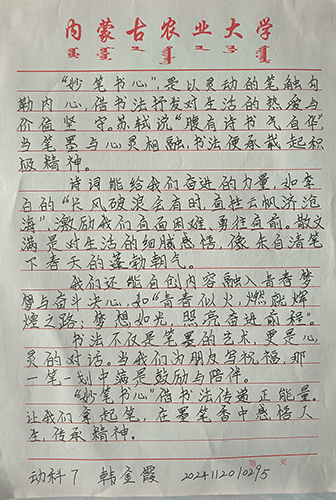 内蒙古农业大学
“妙笔书心”，是以灵动的笔触勾
勒内心，借书法抒发对生活的热爱与
价值坚守。苏轼说“腹有诗书气自华”
当笔墨与心灵相融，书法便承载起积
极精神。
诗词能给我们奋进的力量，如李
白的“长风破浪会有时，直挂云帆济沧
海”，激励我们直面困难，勇往直前。散文
满是对生活的细腻感悟，像朱自清笔
下春天的蓬勃朝气。
我们还能自创内容融入青春梦
想与奋斗决心，如“青春似火，燃就辉
煌之路；梦想如光，照亮奋进前程”。
书法不仅是笔墨的艺术，更是心
灵的对话。当我们为朋友写祝福，那
一笔一划中满是鼓励与陪伴。
“妙笔书心”借书法传递正能量。
让我们拿起笔，在墨笔香中感悟人
生，传承精神。
第 页
动科7 韩金霞 2024112010295